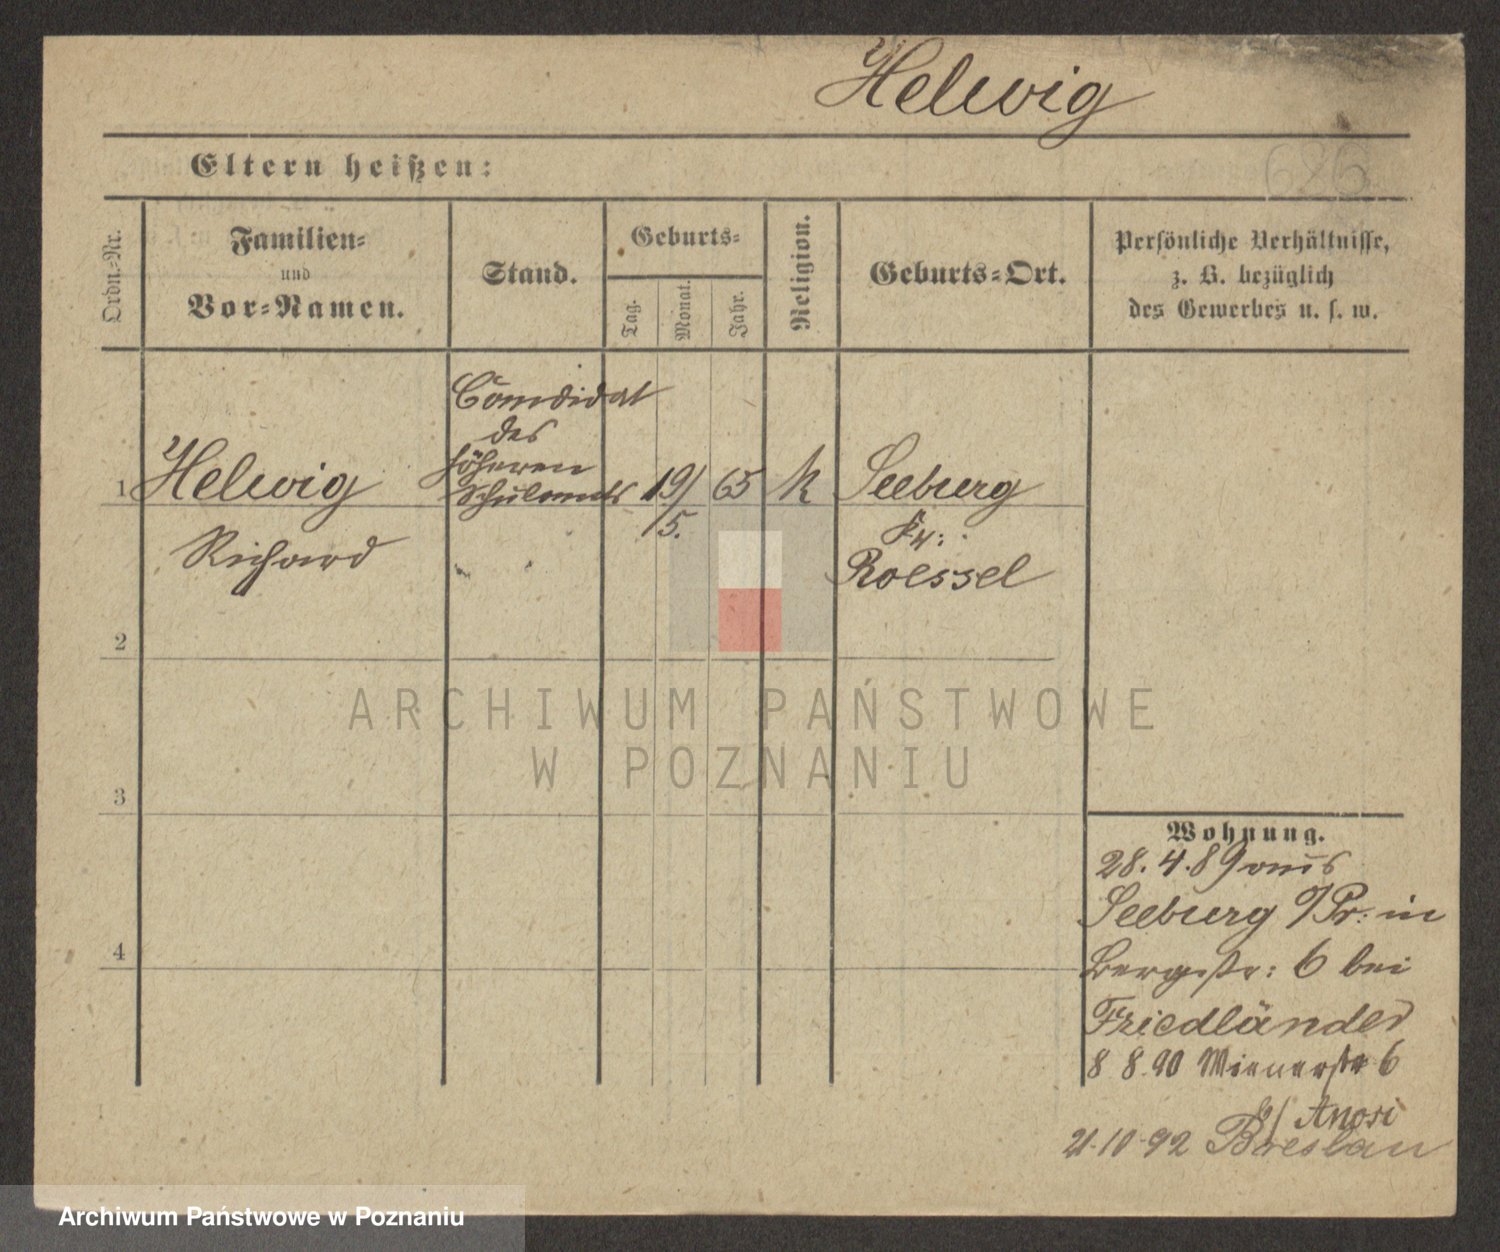 Helwig
Eltern heißen:
626
Ordn.-Nr.
Familien-
und
Vor-Namen.
Stand.
Geburts-
Tag.
Monat.
Jahr.
Religion.
Geburts-Ort.
Persönliche Verhältnisse,
z. B. bezüglich
des Gewerbes u. s. w.
Candidat
des
höheren
Schulamts
1 Helwig 19/ 65 k Seeburg
Richard 5. Kr:
Roessel
2
3
4
Wohnung.
28.4.89 aus
Seeburg O/Pr: in
Bergstr: 6 bei
Friedländer
8 8.90 Wienerstr 6
b/
21.10.92 Breslau
ARCHIWUM PAŃSTWOWE
W POZNANIU
Archiwum Państwowe w Poznaniu